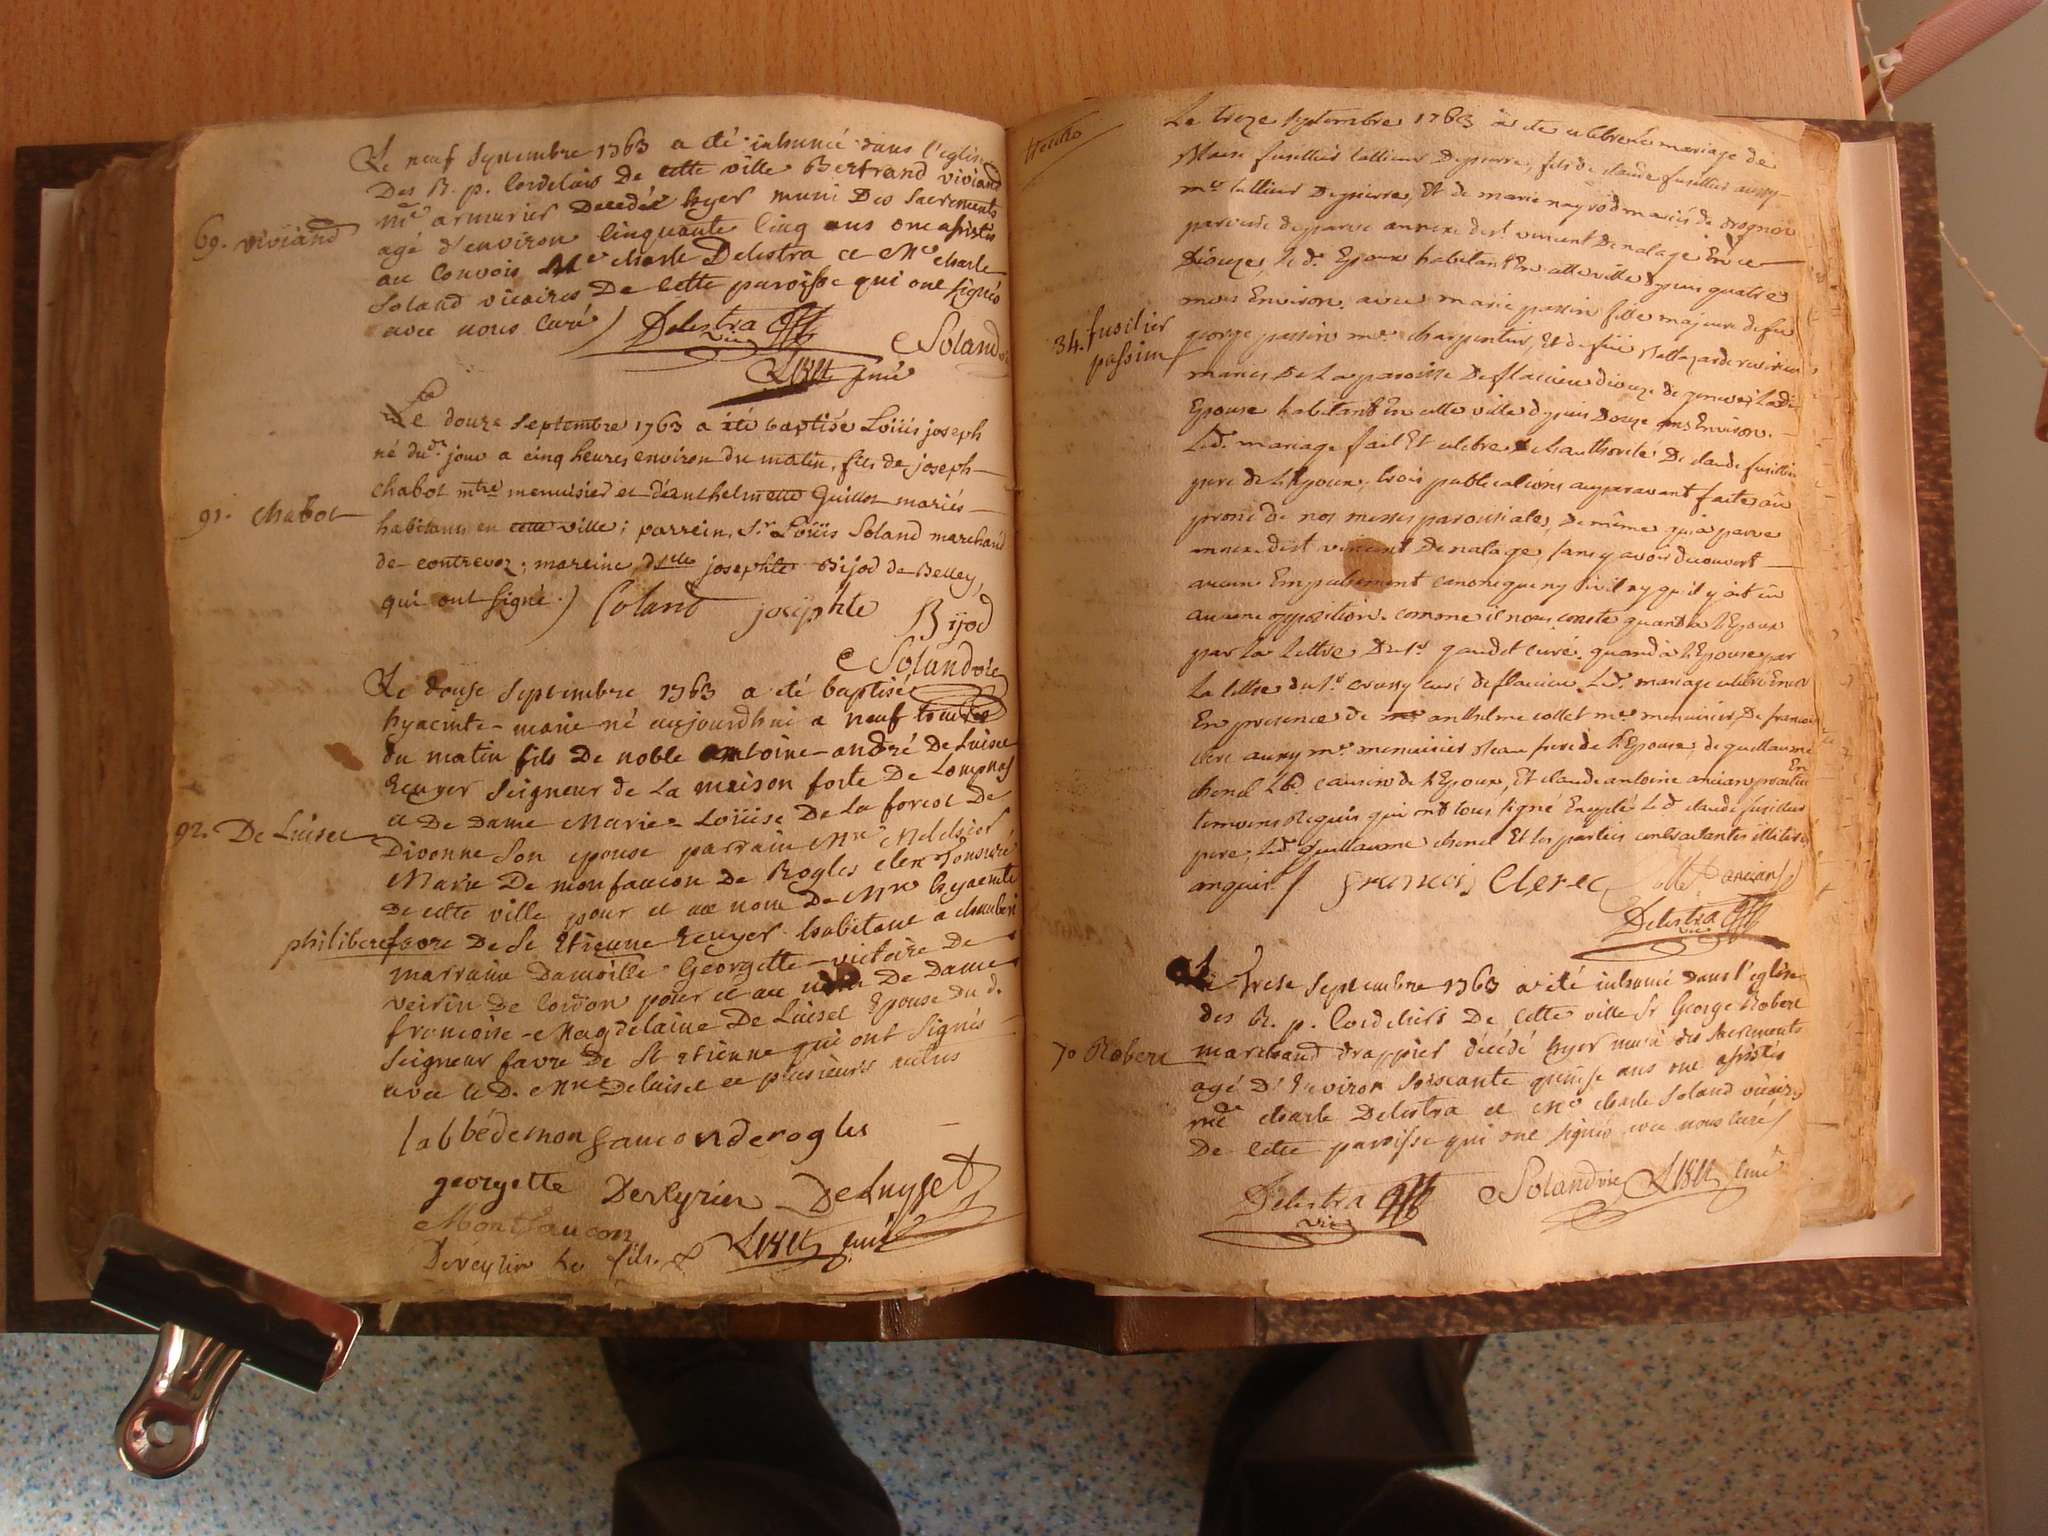 Le neuf Septembre 1763 a été inhumé dans l'eglise
Des R. p. Cordeliers De cette ville Bertrand viviand
me armurier Decedé hyer muni Des Sacrements
69. viviand
agé d'environ Cinquante Cinq ans ont assistés
au Convois Me charle Delestra et Me charle
Soland vicaires De Cette paroisse qui ont signés
avec nous Curé
Delestra vic
Soland
Curé
Le douze Septembre 1763 a été baptisé Loüis joseph
né dud. jour a cinq heures environ du matin, fils de joseph
chabot mtre menuisier et d'anthelmette Guillot mariés
91. chabot
habitans en cette ville; parrein, Sr Loüis Soland marchand
de contrevoz; mareine, dlle josephte Bijod de Belley,
qui ont signé.
Soland josephte Bijod
Soland vic
Le douse Septembre 1763 a été baptisé
hyacinte-marie né aujourdhui a neuf heures
du matin fils De noble antoine-andré De Luiset
Ecuyer Seigneur de La maison forte De Lompnas
et De Dame Marie-Loüise De La forest De
92. De Luiset
Divonne Son epouse parrain Mre Melchior
Marie De monfaucon De Rogles clerc Tonsuré
De cette ville pour et au nom De Mre hyacinte
philibert favre De St Etienne Ecuyer habitant a chamberi
marraine Damoille Georgette-victoire De
veirin De pour et au nom De Dame
francoise-Magdelaine De Luiset Epouse du d.
Seigneur favre De St Etienne qui ont Signés
avec le D. Mre Deluiset et plusieurs autres
labbé demonfauconderogles
georgette Deveyrien DeLuyset
Montfaucon
Deveyrin fils. Curé
Le treze Septembre 1763 a ete celebré le mariage de
fusellier tallieur De pierre, fils de claude fusellier aussy
me tallieur De pierre, Et de marie mariés de
paroisse de parve annexe de st vincent De nalage En ce
Dioceze, Le d. Epoux habitant En cette ville depuis quatre
mois Environ, avec marie passin fille majeure de feu
34. fusilier
passin
george passin me charpentier, Et de feüe
mariés De La paroisse De flacieu dioceze de geneve, Ladte
Epouse habitant En cette ville depuis Douze ans Environ.
Led. mariage fait Et celebré De claude fusellier
pere De L'Epoux, trois publications auparavant faites au
prone de nos messes paroissiales, De même qu'a parve
annexe de st vincent De nalage, sans y avoir decouvert
aucun Empechement canonique ny civil ny qu'il y ait eu
aucune opposition. comme il nous conste quant a L'Epoux
par La Lettre Du sr gaudet curé. quand a L'Epouse par
La lettre du sr curé De flacieu. Led. mariage celebré
En presence de anthelme collet me menuisier, De francois
clerc aussy me menuisier beau frere de L'Epouse, de guillaume
chenel cousin de L'Epoux, Et claude antoine ancian praticien
temoins Requis qui ont tous signé Excepté Led. claude fusellier
pere, Led. Guillaume chenel Et les parties contractantes illiterés
enquis
francois Clerc Collet ancian
Delestra vic
Le treze Septembre 1763 a été inhumé dans l'eglise
des R. p. Cordeliers De Cette ville Sr George Robert
70 Robert
marchand drappier décédé hyer muni des Sacrements
agé D'Environ Soiscante quinse ans ont assistés
me charle Delestra et Me charle Soland vicaires
De Cette paroisse qui ont signés avec nous Curé
Delestra vic Soland vic Curé